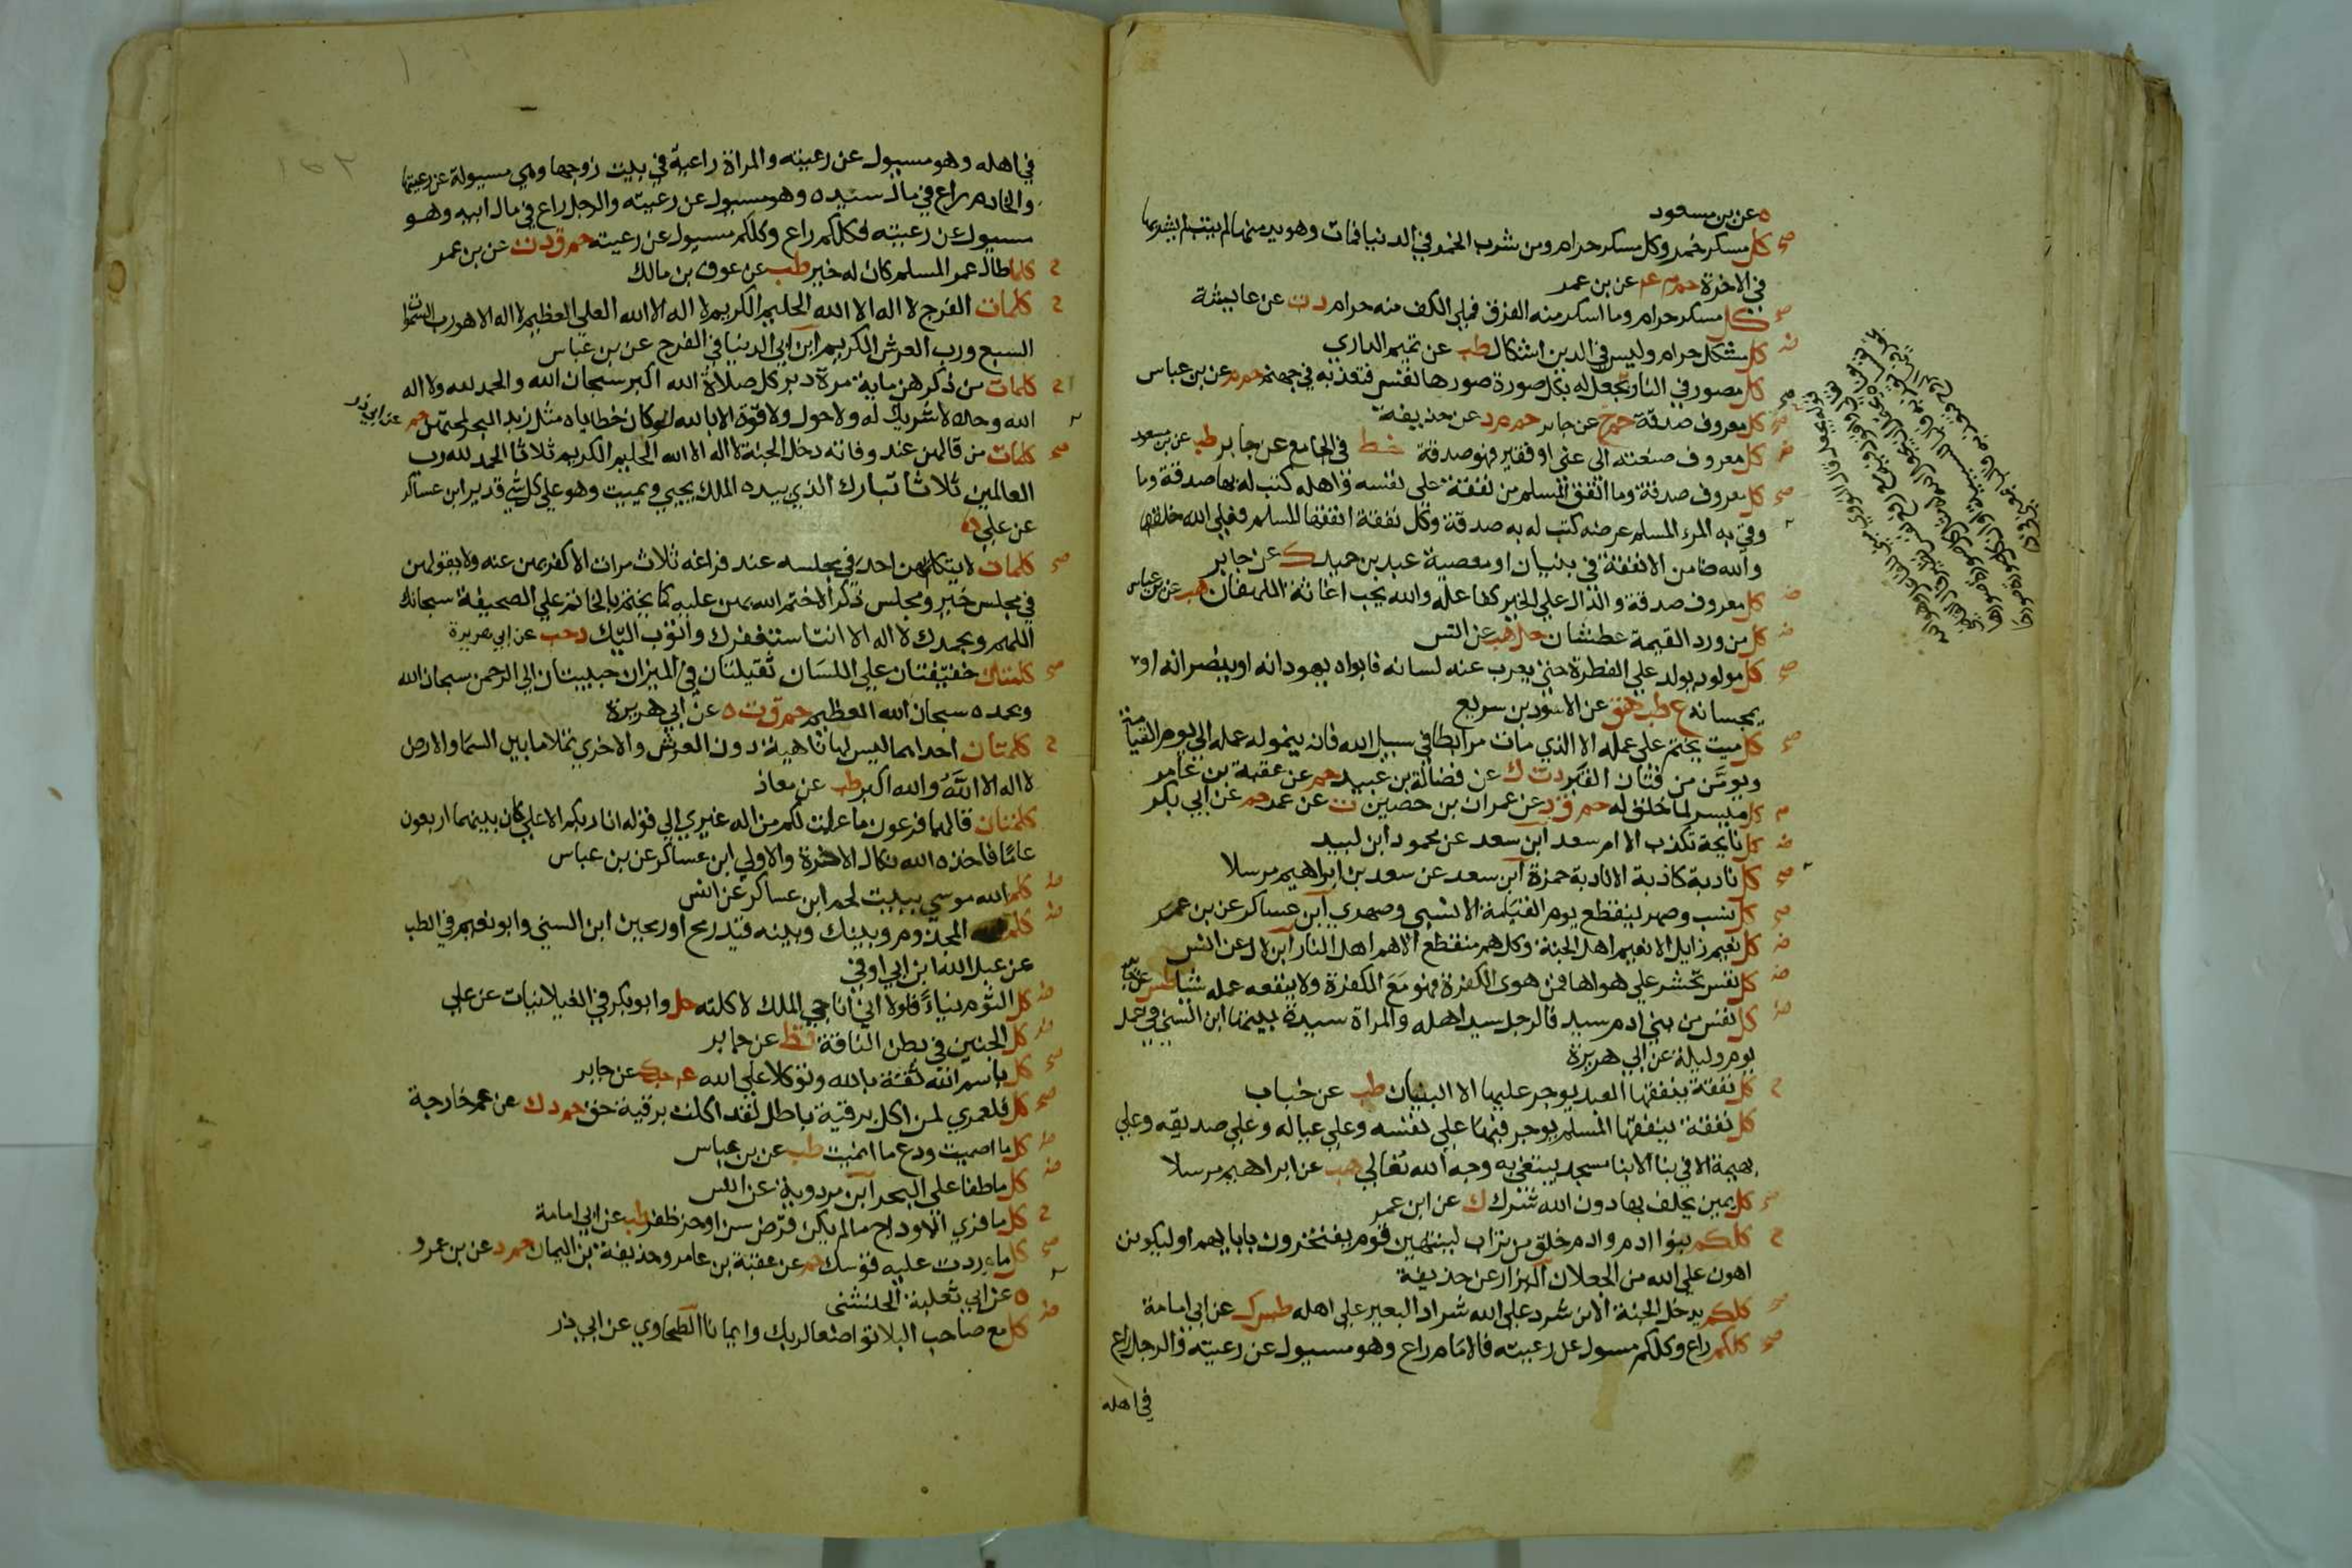 ه عن بن مسعود
صح كل مسكر خمر وكل مسكر حرام ومن شرب الخمر في الدنيا فمات وهو يدمنها لم يتب لم يشربها
في الاخرة حم م عم عن بن عمر
صح كل مسكر حرام وما اسكر منه الفرق فملي الكف منه حرام دت عن عايشة
ض كل مشكل حرام وليس في الدين اشكال طب عن تميم الداري
صح كل مصور في النار يجعل له بكل صورة صورها نفس فتعذبه في جهنم حم م عن بن عباس
صح كل معروف صدقة حم خ عن جابر حم م د عن حذيفة
ض كل معروف صنعته الى غني او فقير فهو صدقة خط في الجامع عن جابر طب عن بن مسعود
صح كل معروف صدقة وما انفق المسلم من نفقة على نفسه واهله كتب له بها صدقة وما
وقي به المرء المسلم عرضه كتب له به صدقة وكل نفقة انفقها المسلم فعلى الله خلفها
والله ضامن الا نفقة في بنيان او معصية عبد بن حميد ك عن جابر
ض كل معروف صدقة والدال على الخير كفاعله والله يحب اغاثة اللهفان هب عن بن عباس
ض كل من ورد القيمة عطشان حل هب عن انس
صح كل مولود يولد على الفطرة حتى يعرب عنه لسانه فابواه يهودانه او ينصرانه او
يمجسانه ع طب هق عن الاسود بن سريع
صح كل ميت يختم على عمله الا الذي مات مرابطا في سبيل الله فانه ينمو له عمله الى يوم القيامة
ويومن من فتان القبر دت ك عن فضالة بن عبيد حم عن عقبة بن عامر
كل ميسر لما خلق له حم ق د عن عمران بن حصين ت عن عمر حم عن ابي بكر
ض كل نايحة تكذب الا ام سعد ابن سعد عن محمود ابن لبيد
صح كل نادبة كاذبة الا نادبة حمزة ابن سعد عن سعد بن ابراهيم مرسلا
صح كل نسب وصهر ينقطع يوم القيامة الا نسبي وصهري ابن عساكر عن بن عمر
ض كل نعيم زايل الا نعيم اهل الجنة وكل هم منقطع الا هم اهل النار ابن لال عن انس
ض كل نفس تحشر على هواها فمن هوى الكفرة فهو مع الكفرة ولا ينفعه عمله شيا طس عن جابر
ض كل نفس من بني ادم سيد فالرجل سيد اهله والمراة سيدة بيتها ابن السني في عمل
يوم وليلة عن ابي هريرة
ح كل نفقة ينفقها العبد يوجر عليها الا البنيان طب عن خباب
كل نفقة ينفقها المسلم يوجر فيها على نفسه وعلى عياله وعلى صديقه وعلى
بهيمة الا في بنا الا بنا مسجد يبتغي به وجه الله تعالى هب عن ابراهيم مرسلا
صح كل يمين يحلف بها دون الله شرك ك عن ابن عمر
ح كلكم بنوا ادم وادم خلق من تراب لينتهين قوم يفتخرون بابايهم او ليكونن
اهون على الله من الجعلان البزار عن حذيفة
صح كلكم يدخل الجنة الا من شرد على الله شراد البعير على اهله طس ك عن ابي امامة
صح كلكم راع وكلكم مسول عن رعيته فالامام راع وهو مسيول عن رعيته والرجل راع
في اهله
في اهله وهو مسيول عن رعيته والمراة راعية في بيت زوجها وهي مسيولة عن رعيتها
والخادم راع في مال سيده وهو مسيول عن رعيته والرجل راع في مال ابيه وهو
مسيول عن رعيته فكلكم راع وكلكم مسيول عن رعيته حم ق د ت عن بن عمر
ح كلما طال عمر المسلم كان له خير طب عن عوف بن مالك
ح كلمات الفرج لا اله الا الله الحليم الكريم لا اله الا الله العلي العظيم لا اله الا هو رب السموات
السبع ورب العرش الكريم ابن ابي الدنيا في الفرج عن بن عباس
ح كلمات من ذكرهن ماية مرة دبر كل صلاة الله اكبر سبحان الله والحمد لله ولا اله
الا الله وحده لا شريك له ولا حول ولا قوة الا بالله لو كان خطاياه مثل زبد البحر لمحتهن حم عن ابي ذر
صح كلمات من قالهن عند وفاته دخل الجنة لا اله الا الله الحليم الكريم ثلاثا الحمد لله رب
العالمين ثلاثا تبارك الذي بيده الملك يحيي ويميت وهو على كل شي قدير ابن عساكر
عن علي
صح كلمات لا يتكلم بهن احد في مجلسه عند فراغه ثلاث مرات الا كفر بهن عنه ولا يقولهن
في مجلس خير ومجلس ذكر الا ختم الله بهن عليه كما يختم بالخاتم على الصحيفة سبحانك
اللهم وبحمدك لا اله الا انت استغفرك واتوب اليك د حب عن ابي هريرة
صح كلمتان خفيفتان على اللسان ثقيلتان في الميزان حبيبتان الى الرحمن سبحان الله
وبحمده سبحان الله العظيم حم ق ت ه عن ابي هريرة
ح كلمتان احداهما ليس لها ناهية دون العرش والاخرى تملا ما بين السما والارض
لا اله الا الله والله اكبر طب عن معاذ
كلمتان قالهما فرعون ما علمت لكم من اله غيري الى قوله انا ربكم الاعلى كان بينهما اربعون
عاما فاخذه الله نكال الاخرة والاولى ابن عساكر عن بن عباس
ض كلم الله موسى ببيت لحم ابن عساكر عن انس
ض كلم المجذوم وبينك وبينه قيد رمح او رمحين ابن السني وابو نعيم في الطب
عن عبد الله ابن ابي اوفى
ض كل الثوم نياء فلولا اني اناجي الملك لاكلته حل وابو بكر في الغيلانيات عن علي
ض كل الجنين في بطن الناقة قط عن جابر
صح كل باسم الله ثقة بالله وتوكلا على الله عن جابر
صح كل فلعمري لمن اكل برقية باطل لقد اكلت برقية حق حم د ك عن عم خارجة
ض كل ما اصميت ودع ما انميت طب عن بن عباس
ض كل ما طفا على البحر ابن مردوية عن انس
ح كل ما فرى الاوداج ما لم يكن قرض سن او حز ظفر طب عن ابي امامة
صح كل ما ردت عليه قوسك حم عن عقبة بن عامر وحذيفة بن اليمان حم د عن بن عمرو
ه عن ابي ثعلبة الخشني
ض كل مع صاحب البلا تواضعا لربك وايمانا الطحاوي عن ابي ذر